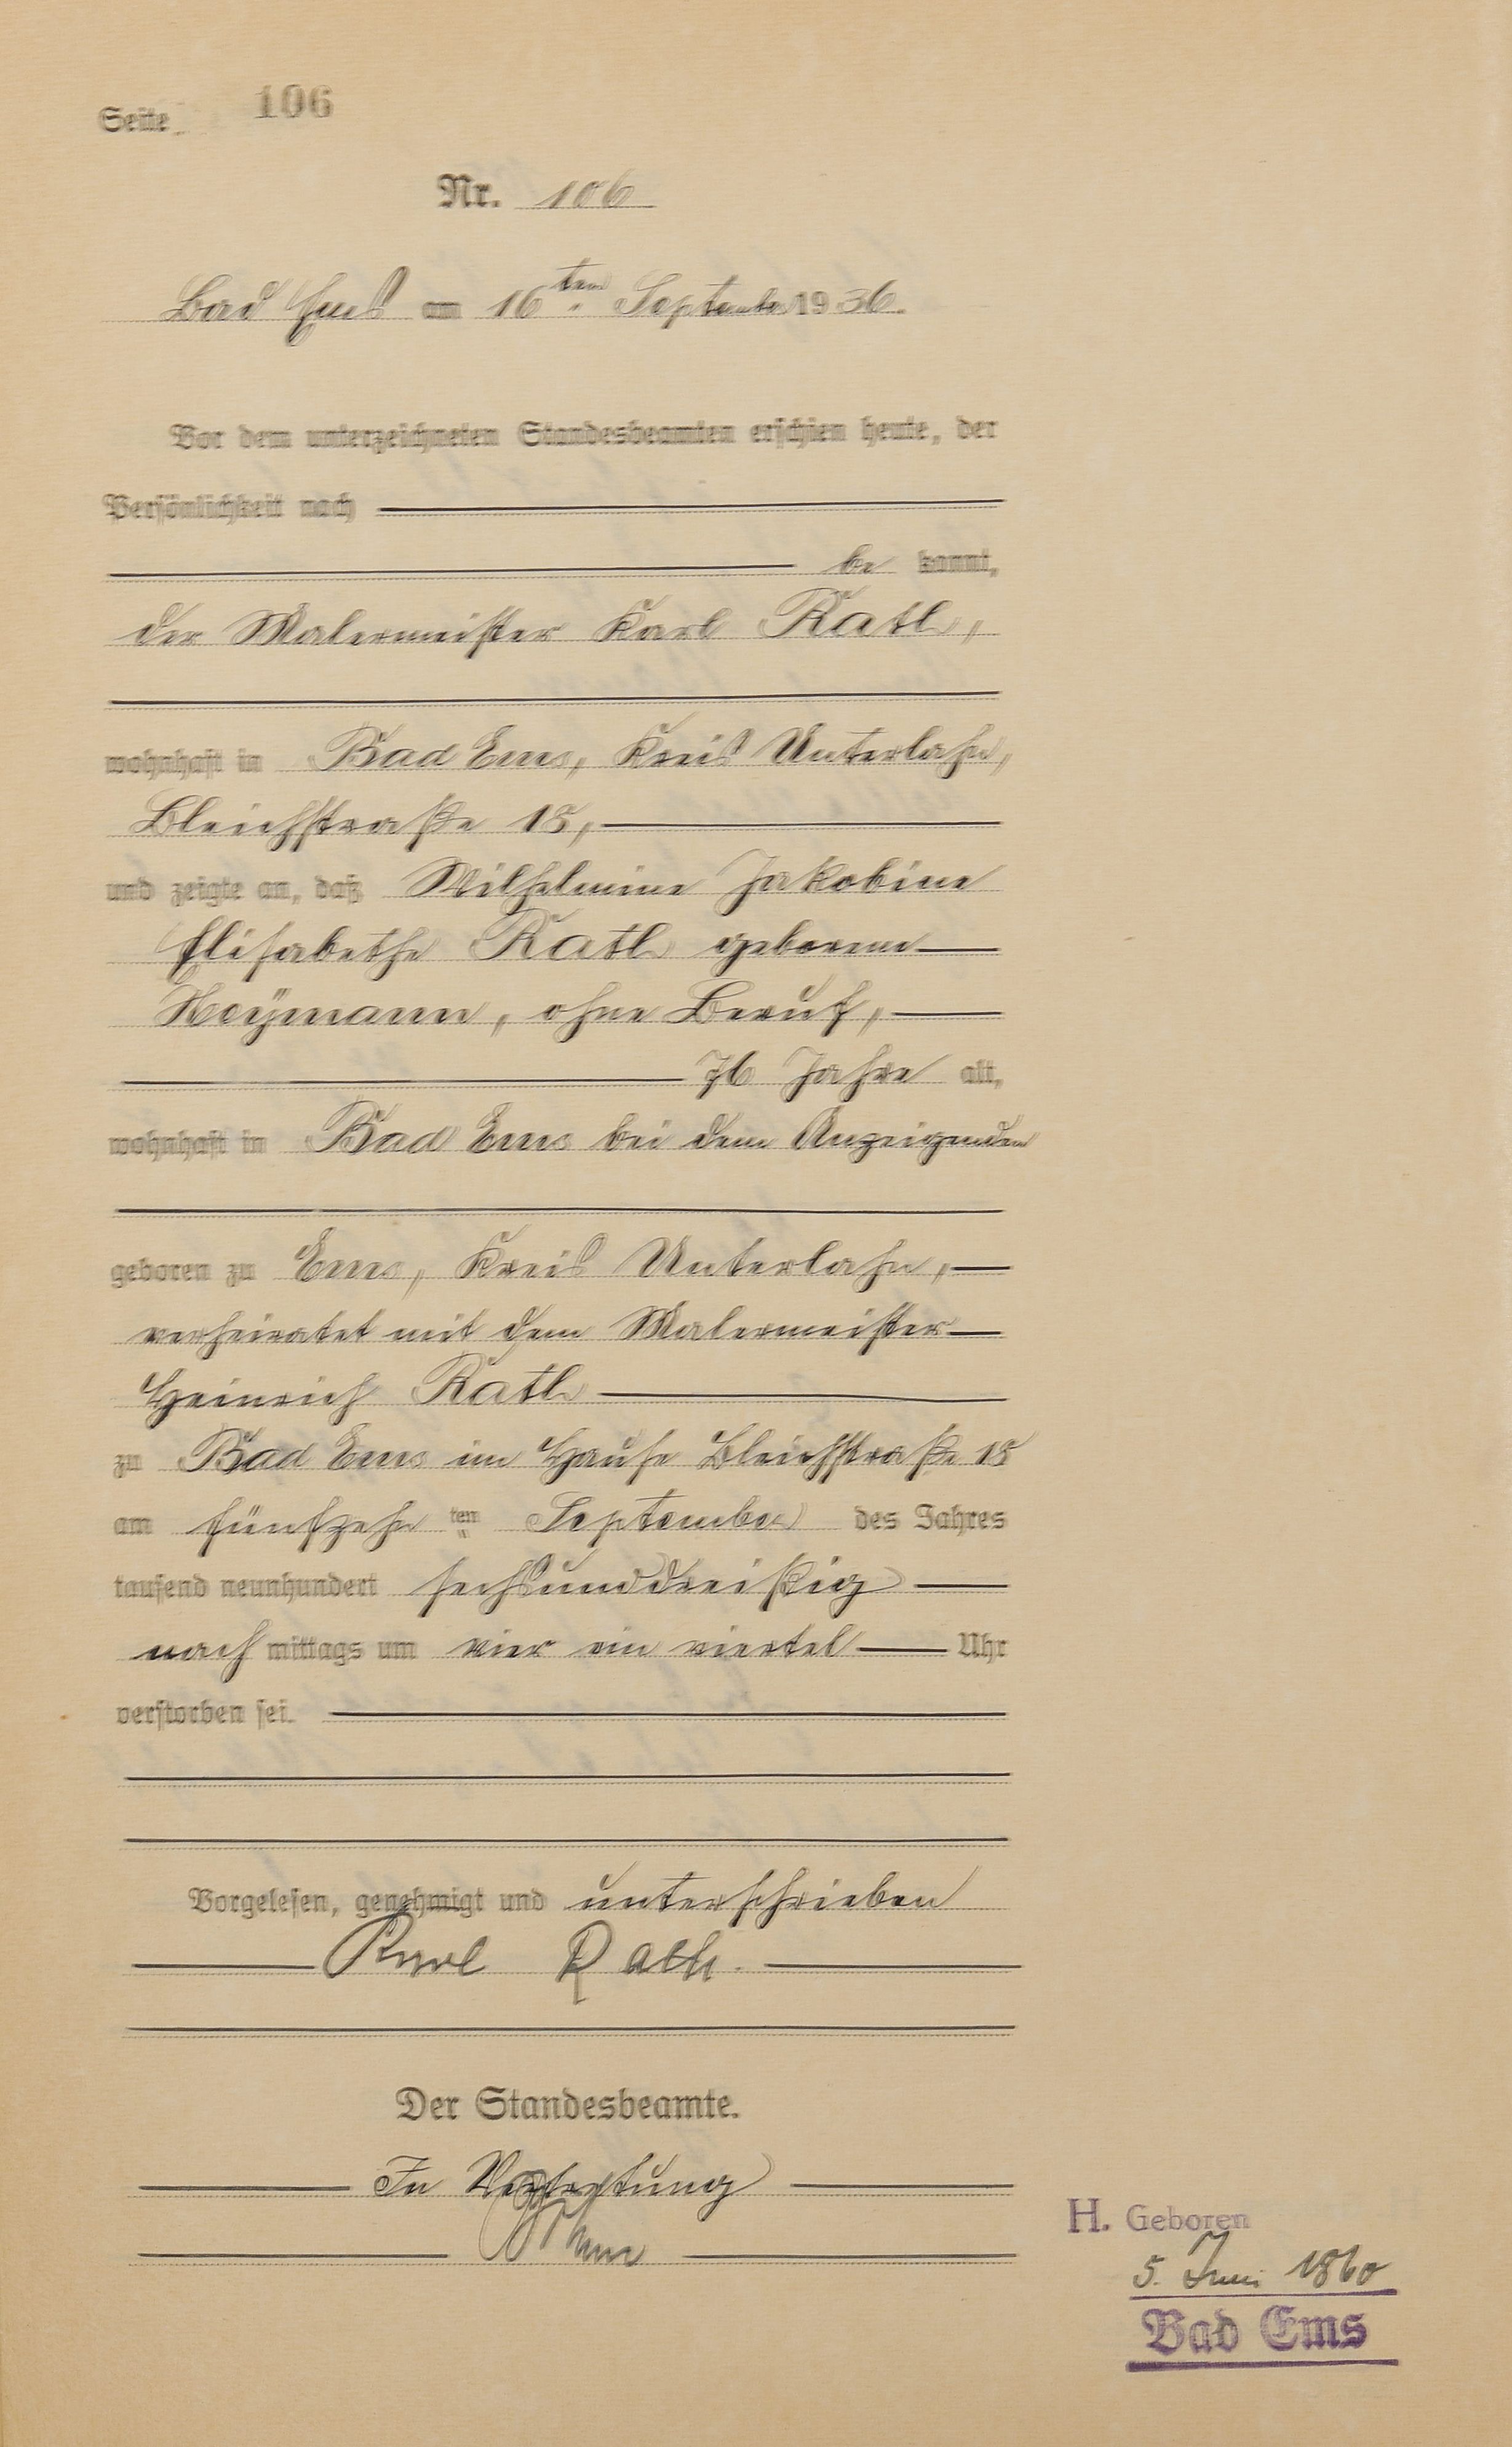 Seite 106
Nr. 106
Bad Ems am 16ten September 1936.
Vor dem unterzeichneten Standesbeamten erschien heute, der
Persönlichkeit nach
be kannt,
der Malermeister Karl Rath,
wohnhaft in Bad Ems, Kreis Unterlahn,
Bleichstraße 18,
und zeigte an, daß Wilhelmine Jakobine
Elisabethe Rath geborene
, ohne Beruf,
76 Jahre alt,
wohnhaft in Bad Ems bei dem Anzeigenden
geboren zu Ems, Kreis Unterlahn,
verheiratet mit dem Malermeister
Heinrich Rath
zu Bad Ems im Hause Bleichstraße 18
am fünfzehn ten September des Jahres
tausend neunhundert sechsunddreißig
nach mittags um vier ein viertel Uhr
verstorben sei.
Vorgelesen, genehmigt und unterschrieben
Karl Rath.
Der Standesbeamte.
In Vertretung
H. Geboren
5. Juni 1860
Bad Ems